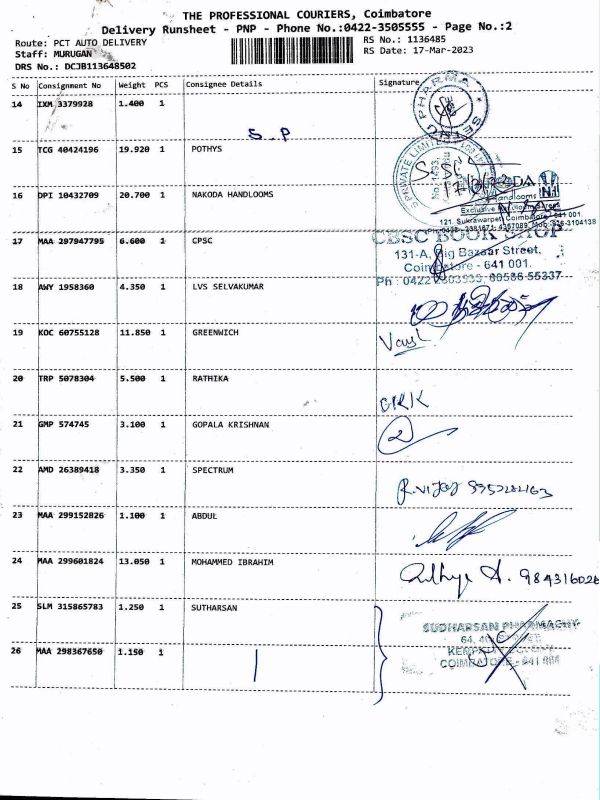 THE PROFESSIONAL COURIERS, Coimbatore
Delivery Runsheet - PNP - Phone No.:0422-3505555 - Page No.:2
Route: PCT AUTO DELIVERY
RS No.: 1136485
Staff: MURUGAN
RS Date: 17-Mar-2023
DRS No.: DCJB113648502
S No Consignment No Weight PCS Consignee Details Signature
14 IXM 3379928 1.400 1
S.P
SETHU PHARMA
15 TCG 40424196 19.920 1 POTHYS
PRIVATE LIMITED
16 DPI 10432709 20.700 1 NAKODA HANDLOOMS
Handlooms
121, Sukrawarpet, Coimbatore - 641 001.
17 MAA 297947795 6.600 1 CPSC
CBSC BOOK SHOP
131-A, Big Bazaar Street,
Coimbatore - 641 001.
18 AWY 1958360 4.350 1 LVS SELVAKUMAR
19 KOC 60755128 11.850 1 GREENWICH
20 TRP 5078304 5.500 1 RATHIKA
21 GMP 574745 3.100 1 GOPALA KRISHNAN
22 AMD 26389418 3.350 1 SPECTRUM
R.Vijay
23 MAA 299152826 1.100 1 ABDUL
24 MAA 299601824 13.050 1 MOHAMMED IBRAHIM
25 SLM 315865783 1.250 1 SUTHARSAN
SUDHARSAN PHARMACHY
26 MAA 298367650 1.150 1
COIMBATORE - 641